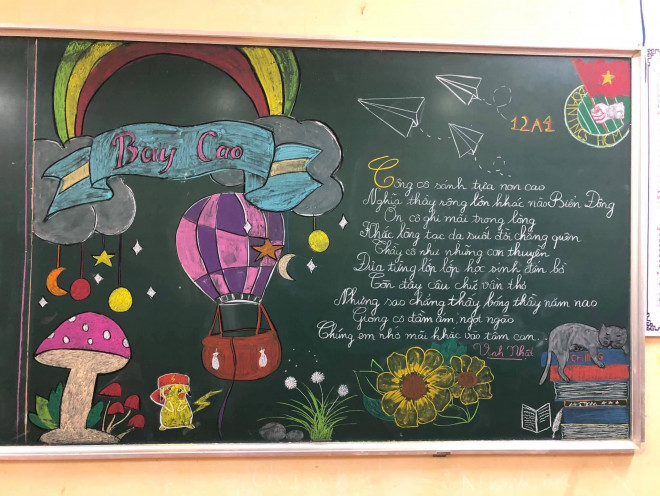 Bay Cao
12A1
Công cô sánh tựa non cao
Nghĩa thầy rộng lớn khác nào Biển Đông
Ơn cô ghi mãi trong lòng
Khắc lòng tạc dạ suốt đời chẳng quên
Thầy cô như những con thuyền
Đưa từng lớp lớp học sinh đến bờ
Còn đây câu chữ vần thơ
Nhưng sao chẳng thấy bóng thầy năm nao
Giọng cô đầm ấm, ngọt ngào
Chúng em nhớ mãi khắc vào tâm can